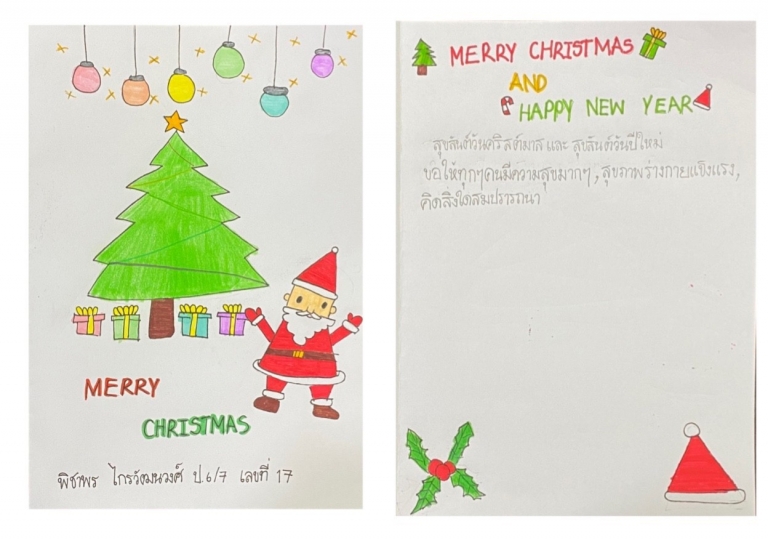 MERRY
CHRISTMAS
พิชาพร ป.6/7 เลขที่ 17
MERRY CHRISTMAS
AND
HAPPY NEW YEAR
สุขสันต์วันคริสต์มาส และ สุขสันต์วันปีใหม่
ขอให้ทุกๆคนมีความสุขมากๆ, สุขภาพร่างกายแข็งแรง,
คิดสิ่งใดสมปรารถนา